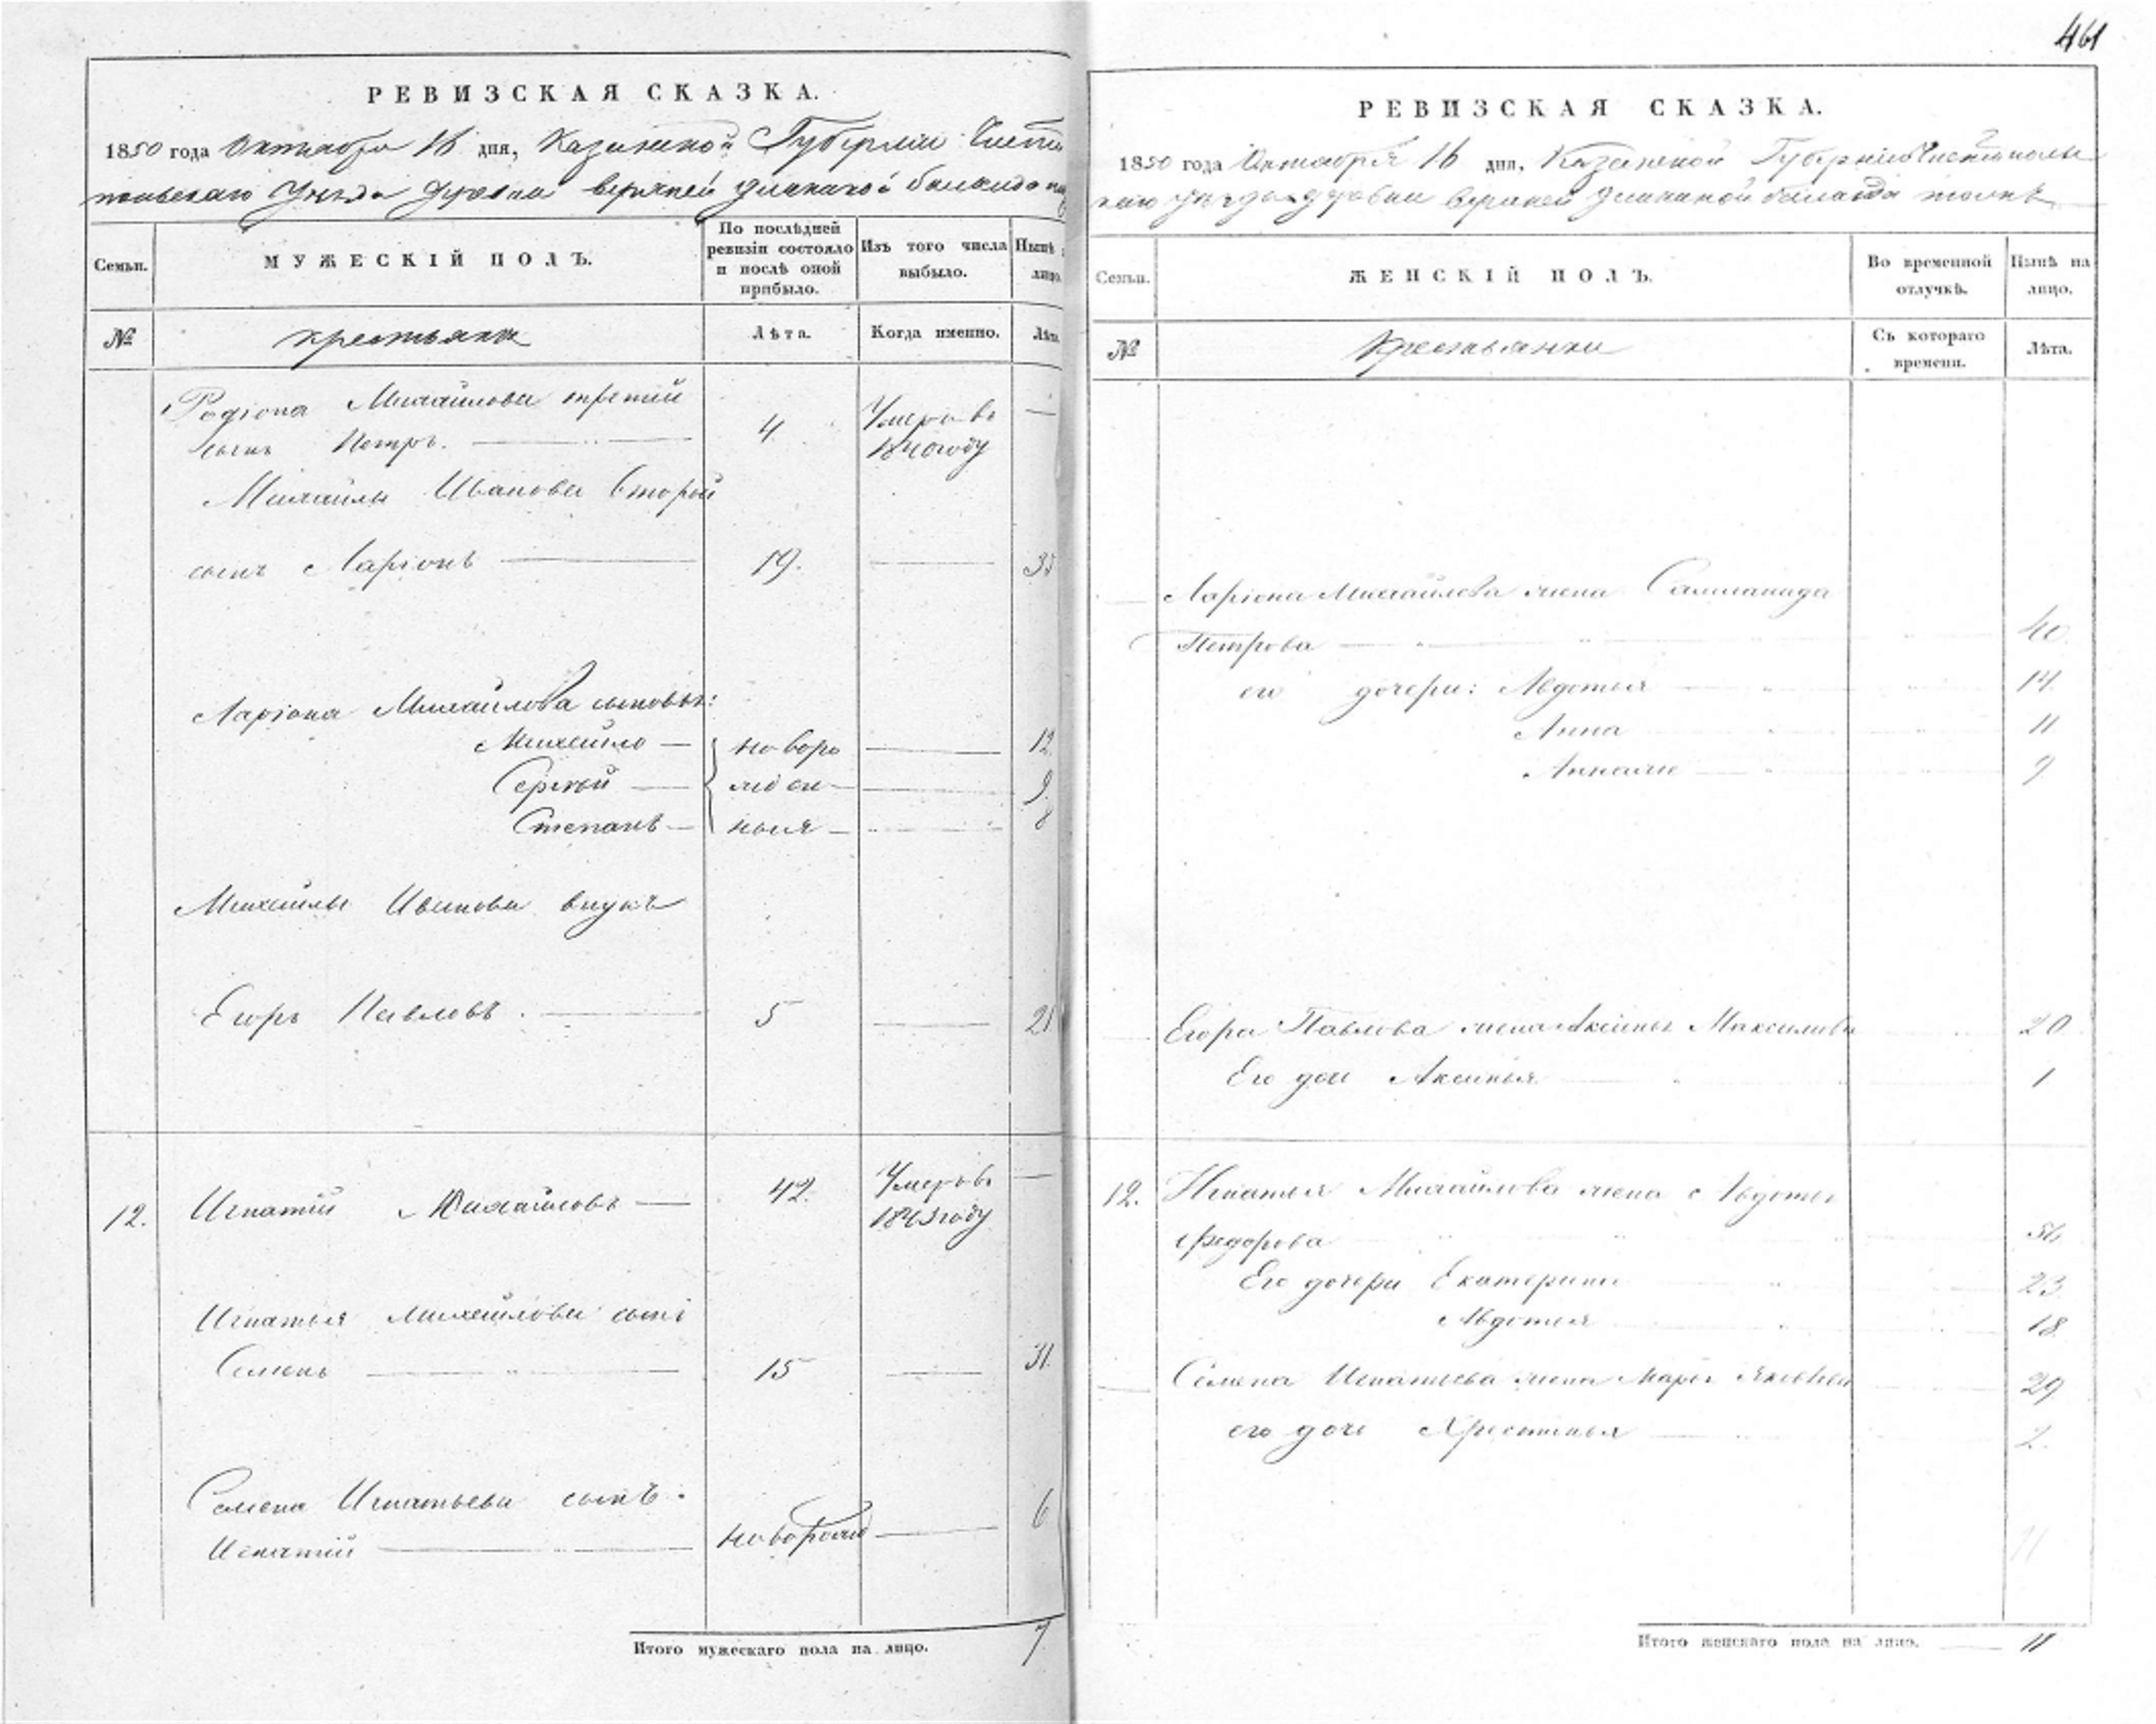 461
РЕВИЗСКАЯ СКАЗКА.
1850 года Октября 16 дня, Казанской Губерніи Чисто
польскаго Уѣзда Деревни верхней
Семьи.
МУЖЕСКІЙ ПОЛЪ.
По послѣдней
ревизіи состояло
и послѣ оной
прибыло.
Изъ того числа
выбыло.
Нынѣ
лицо.
№
крестьяне
Лѣта.
Когда именно.
Лѣта
Родіона Михайлова третій
сынъ Петръ. 4 Умеръ въ
1840 году
Михайлы Иванова второй
сынъ Ларіонъ 19. 35
Ларіона Михайлова сыновья:
Михайло новоро 12.
Сергей жден 9.
Степанъ ныя 8
Михайлы Иванова внукъ
Егоръ Павловъ. 5 21
12. Игнатій Михайловъ 42. Умеръ въ
1843 году
Игнатья Михайлова сынъ
Семенъ 15 31.
Семена Игнатьева сынъ.
Игнатій новорожд 6
Итого мужескаго пола на лицо. 7
РЕВИЗСКАЯ СКАЗКА.
1850 года Октября 16 дня, Казанской Губерніи Чистополь
скаго уѣзда деревни верхней
Семьи.
ЖЕНСКІЙ ПОЛЪ.
Во временной
отлучкѣ.
Нынѣ на
лицо.
№
Крестьянки
Съ котораго
времени.
Лѣта.
Ларіона Михайлова жена
Петрова 40.
его дочери: Авдотья 14.
Анна 11
9
Егора Павлова жена Аксинья Максимова 20
Его дочь Аксинья 1
12. Игнатья Михайлова жена Авдотья
Федорова 56
Его дочери Екатерина 23
Авдотья 18.
Семена Игнатьева жена Марья Яковлева 29
его дочь Хрестинья 2.
11
Итого женскаго пола на лицо. 11